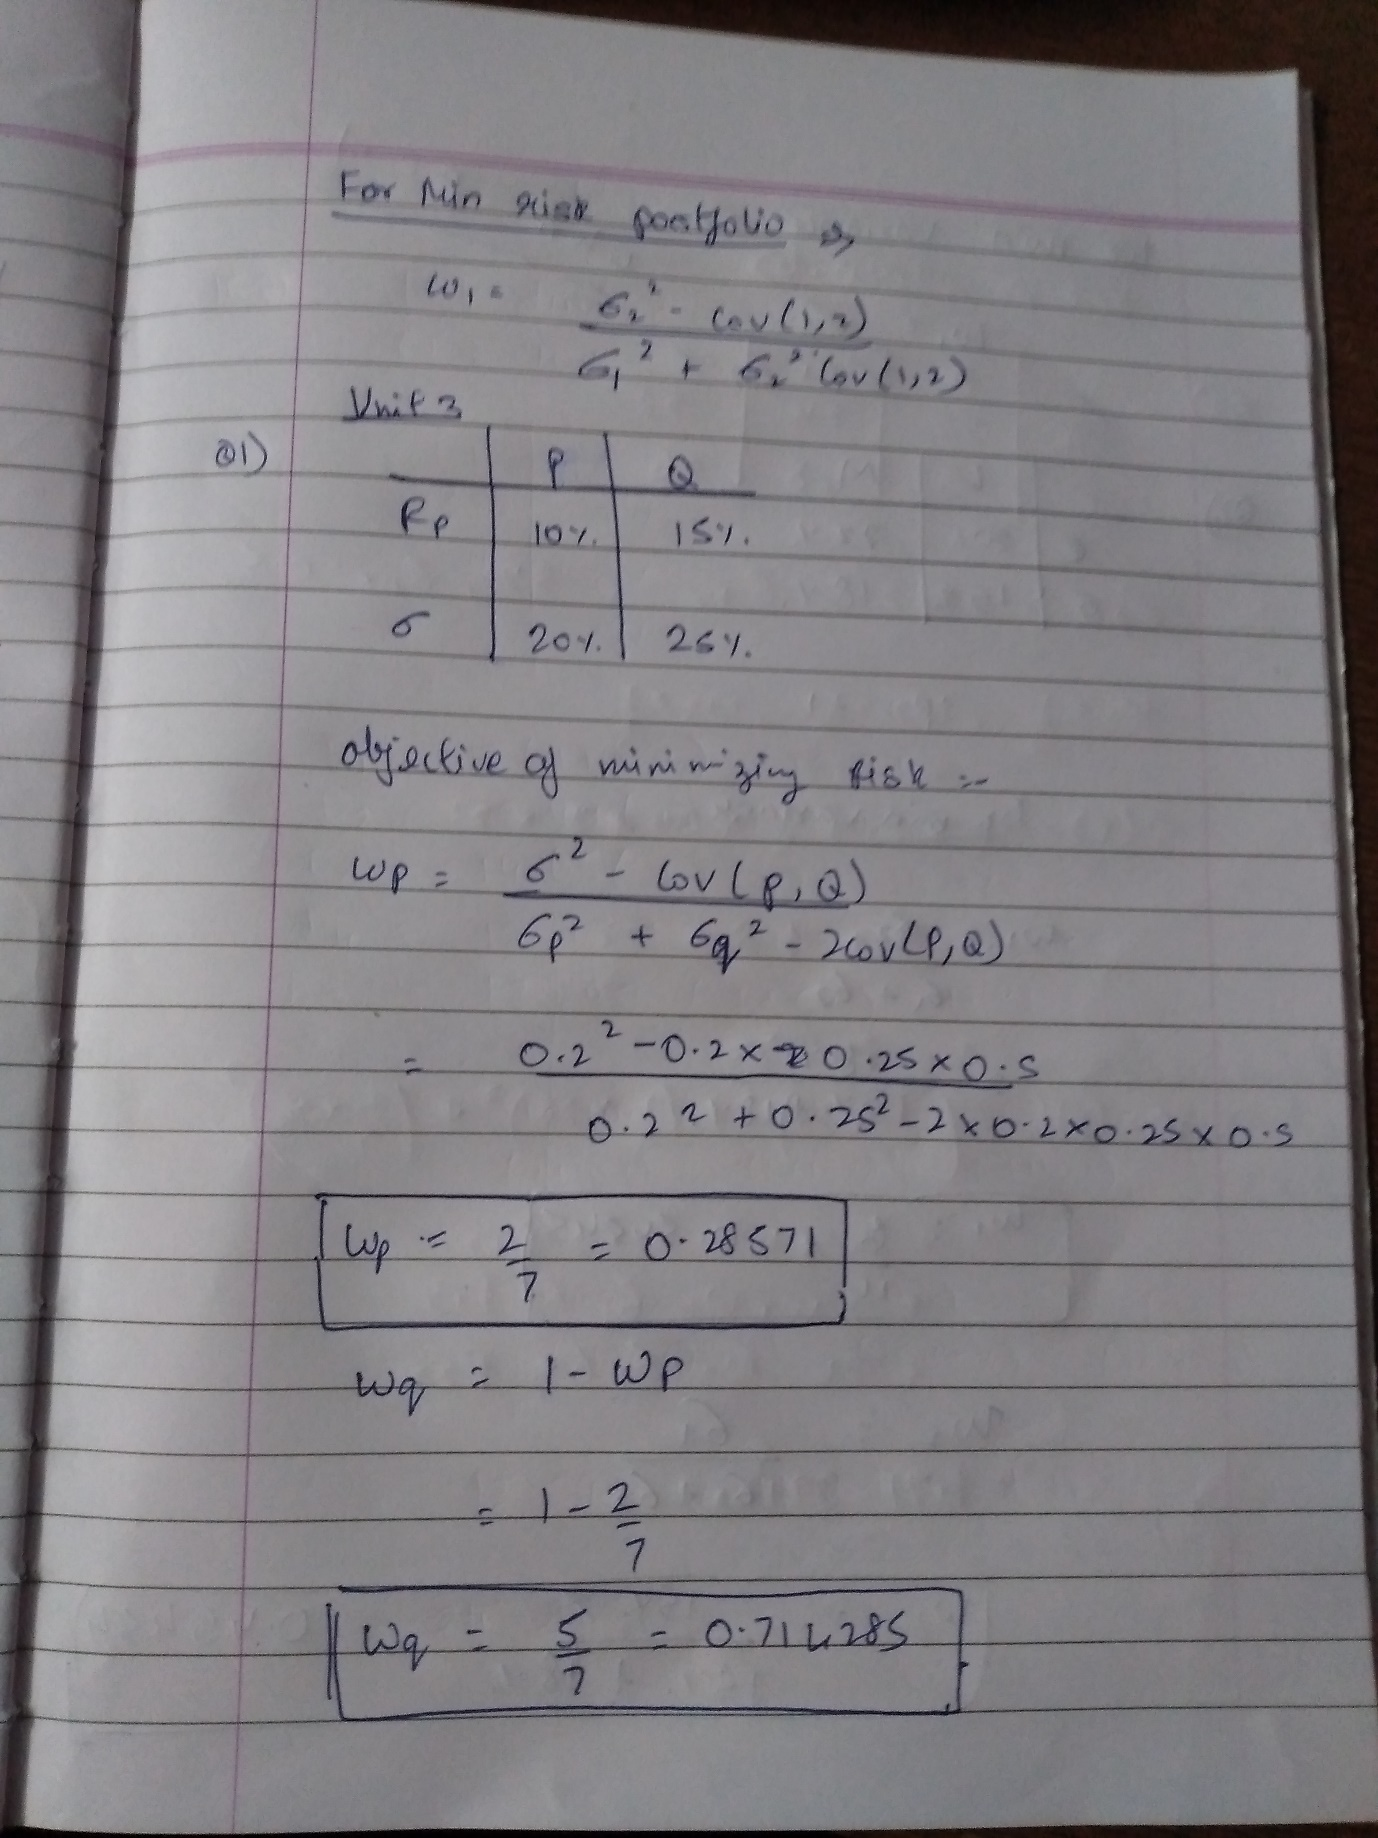 For Min risk portfolio ⇒
w₁ = σ₂² - Cov(1,2)
σ₁² + σ₂² Cov(1,2)
Unit 3
Q1)
P Q
Rp 10%. 15%.
σ 20%. 25%.
objective of minimizing risk :-
wp = σ² - Cov(P,Q)
σp² + σq² - 2cov(P,Q)
= 0.2² - 0.2 × 0.25 × 0.5
0.2² + 0.25² - 2 × 0.2 × 0.25 × 0.5
wp = 2/7 = 0.28571
wq = 1 - wp
= 1 - 2/7
wq = 5/7 = 0.714285